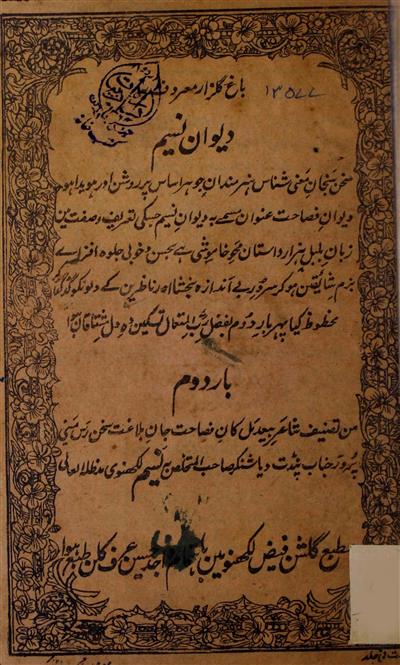 باغ گلزار معروف ۱۳۵۷۷
دیوان نسیم
سخن سنجان معنی شناس ہنرمندان جوہر اساس پر روشن اور ہویدا ہو
دیوان فصاحت عنوان مسمے بہ دیوان نسیم جسکی تعریف و صفت مین
زبان بلبل ہزار داستان محو خاموشی ہے بحسن و خوبی جلوہ افزاے
بزم شایقین ہو کر سرور بے اندازہ بخشا اور ناظرین کے دلونکو
محظوظ کیا پہر بار دوم بفضل رب المتعال تسکین دہ دل مشتاقان ہوا
بار دوم
من تصنیف شاعر بیعدیل کان فصاحت جان بلاغت سخن رس معنی
پرور جناب پنڈت دیا شنکر صاحب المتخلص بہ نسیم لکھنوی مدظلہ العالی
مطبع گلشن فیض لکھنو مین طبع ہوا